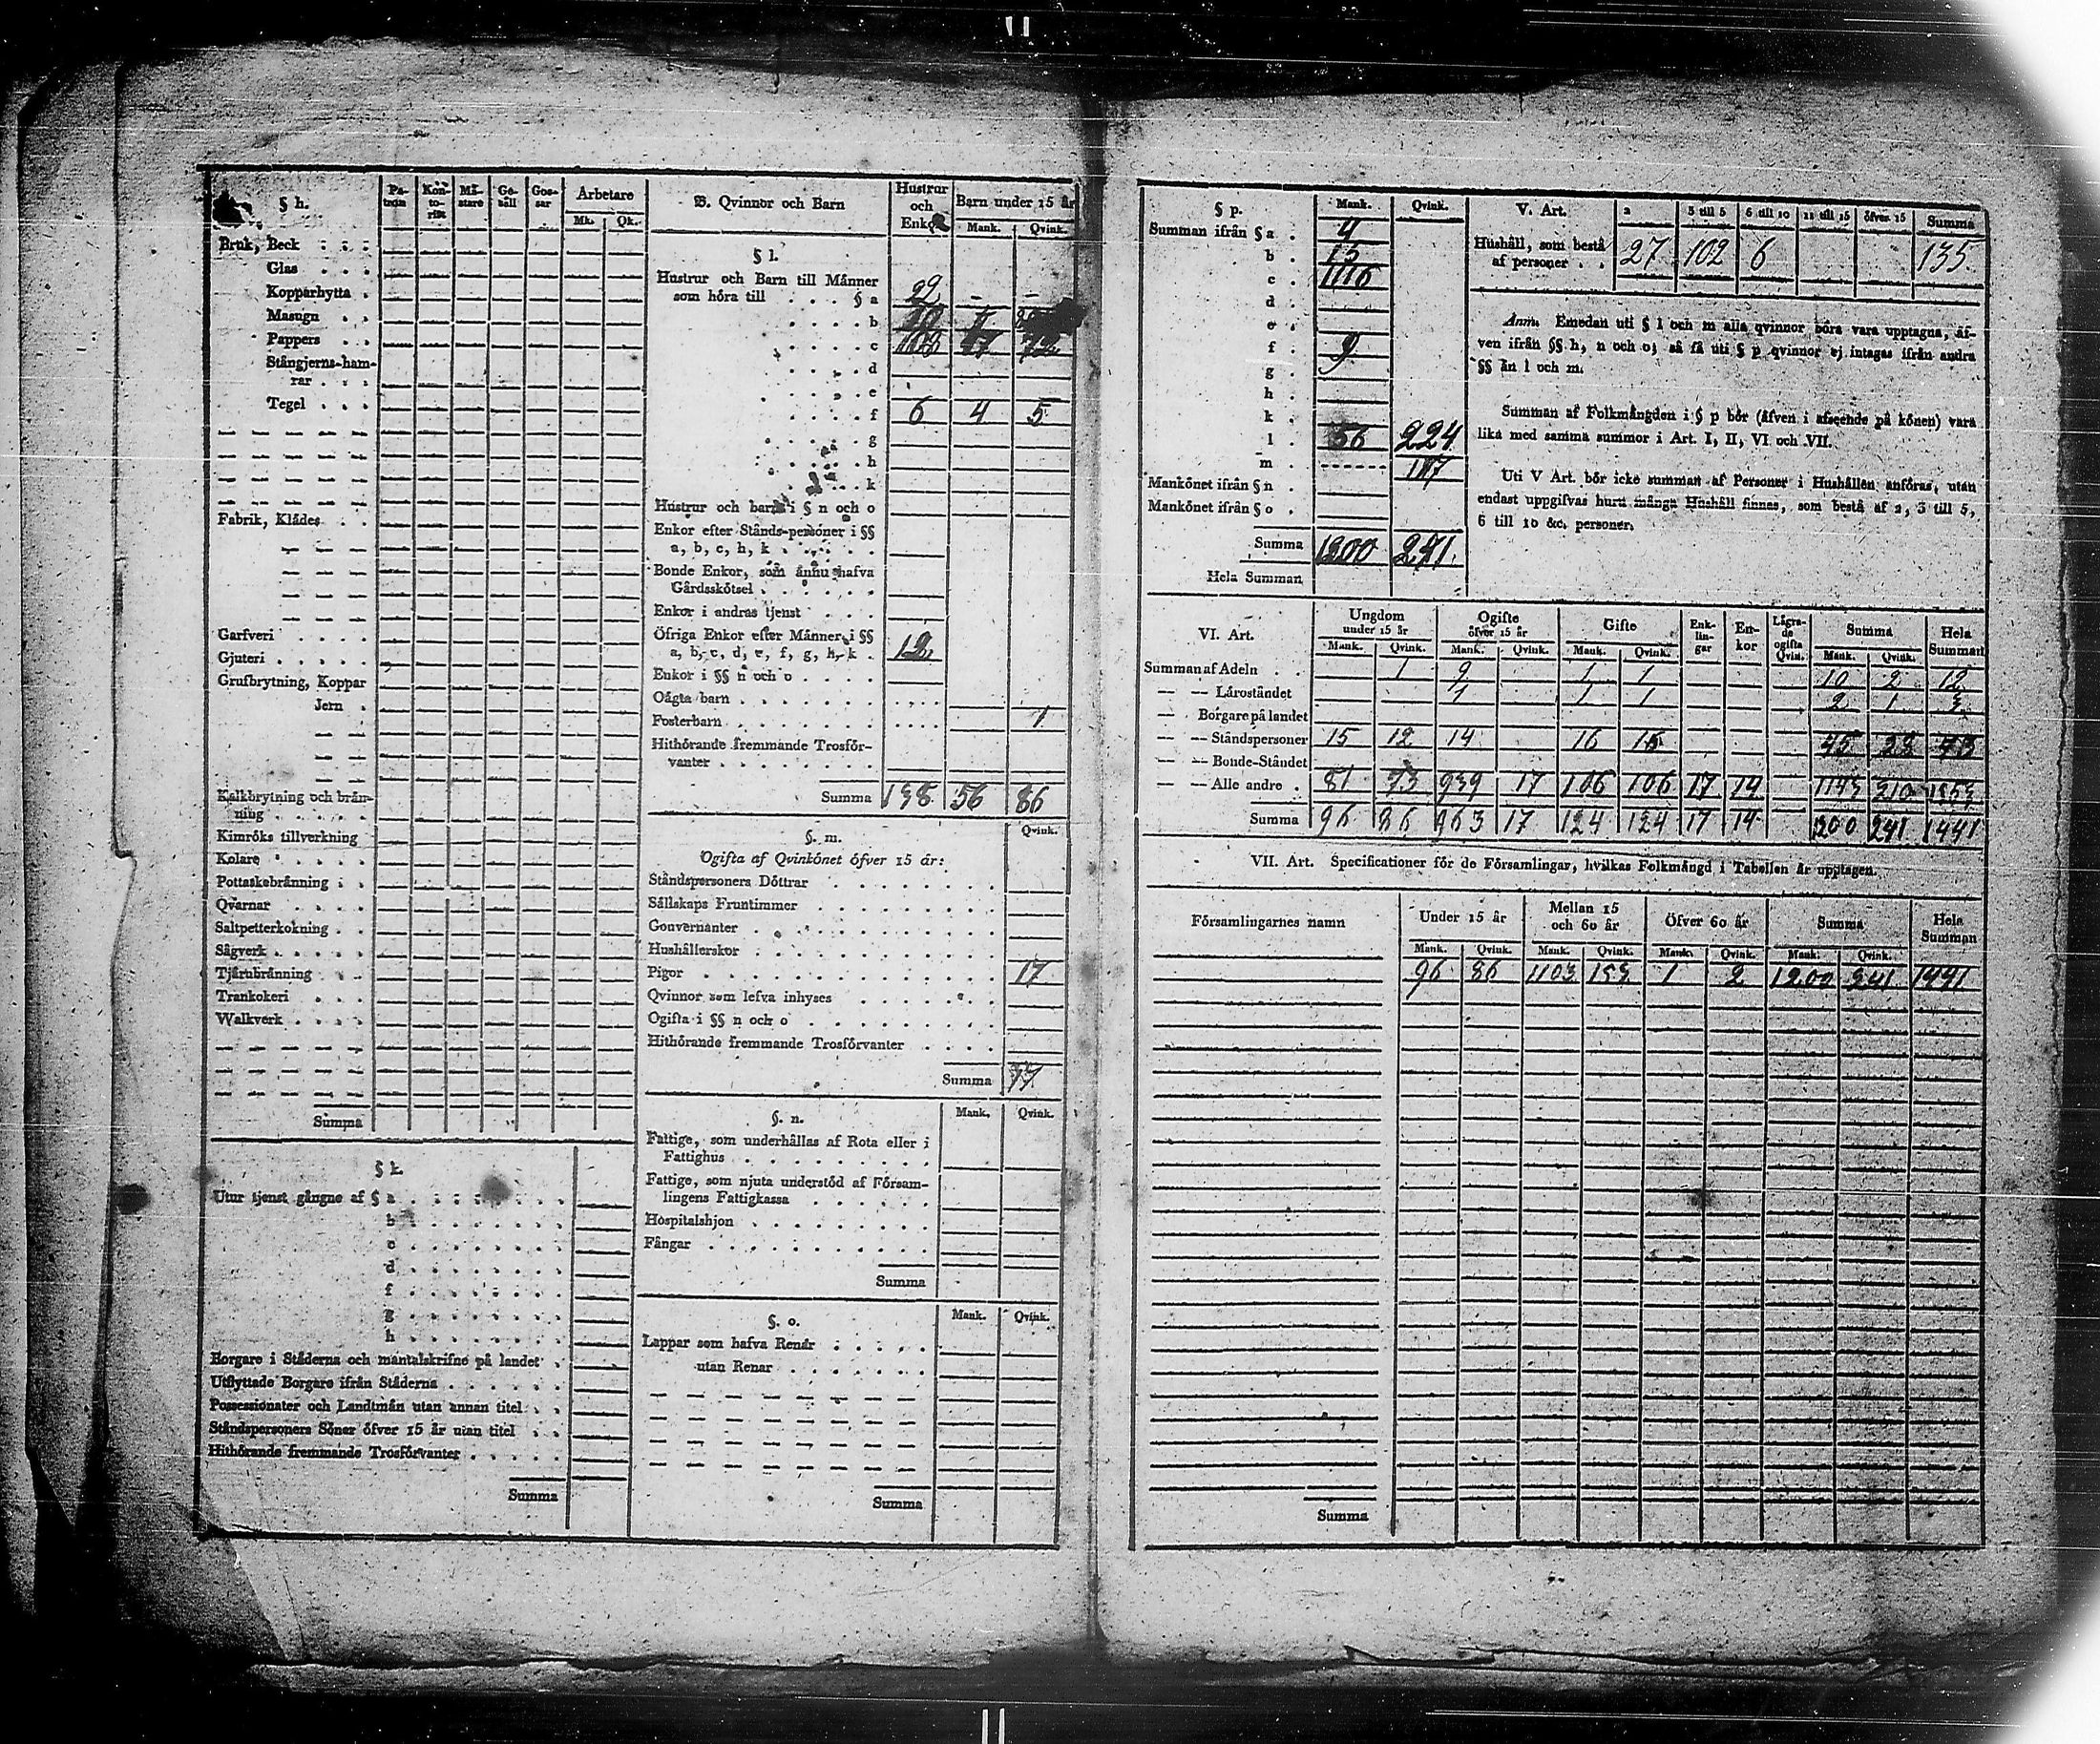 § h.
Pa-
Kon-
to-
rist
Mä-
stare
Ge-
säll
Gos-
sar
Arbetare
Mk.
Qk.
Bruk, Beck
Glas
Kopparhytta
Masugn
Pappers
Stångjerns-ham-
rar
Tegel
Fabrik, Klädes
Garfveri
Gjuteri
Grufbrytning, Koppar
Jern
Kalkbrytning och brän-
ning
Kimröks tillverkning
Kolare
Pottaskebränning
Qvarnar
Saltpetterkokning
Sågverk
Tjärubränning
Trankokeri
Walkverk
Summa
§ k.
Utur tjenst gångne af § a
b
c
d
f
g
h
Borgare i Städerna och mantalskrifne på landet
Utflyttade Borgare ifrån Städerna
Possessionater och Landtmän utan annan titel
Ståndspersoners Söner öfver 15 år utan titel
Hithörande fremmande Trosförvanter
Summa
B. Qvinnor och Barn
Hustrur
och
Barn under 15 år
Mank.
Qvink.
§ l.
Hustrur och Barn till Männer
som höra till § a
b
c
d
e
f 6 4 5
g
h
k
Hustrur och barn i § n och o
Enkor efter Stånds-personer i §§
a, b, c, h, k
Bonde Enkor, som ännu hafva
Gårdsskötsel
Enkor i andras tjenst
Öfriga Enkor efter Männer i §§
a, b, c, d, e, f, g, h, k
Enkor i §§ n och o
Oägta barn
Fosterbarn 1
Hithörande fremmande Trosför-
vanter
Summa 138 56 86
§. m.
Qvink.
Ogifta af Qvinkönet öfver 15 år:
Ståndspersoners Döttrar
Sällskaps Fruntimmer
Gouvernanter
Hushållerskor
Pigor 17
Qvinnor som lefva inhyses
Ogifta i §§ n och o
Hithörande fremmande Trosförvanter
Summa
§. n.
Mank.
Qvink.
Fattige, som underhållas af Rota eller i
Fattighus
Fattige, som njuta understöd af Försam-
lingens Fattigkassa
Hospitalshjon
Fångar
Summa
§. o.
Mank.
Qvink.
Lappar som hafva Renar
utan Renar
Summa
§ p.
Mank.
Qvink.
Summan ifrån § a 4
b
c 1116
d
e
f 9
g
h
k
l 56 224
m
Mankönet ifrån § n
Mankönet ifrån § o
Summa 1200
Hela Summan
V. Art.
2
3 till 5
6 till 10
11 till 15
öfver 15
Summa
Hushåll, som bestå
af personer 27 102 6 135
Anm. Emedan uti § l och m alla qvinnor böra vara upptagna, äf-
ven ifrån §§ h, n och o; så få uti § p qvinnor ej intagas ifrån andra
§§ än l och m.
Summan af Folkmängden i § p bör (äfven i afseende på könen) vara
lika med samma summor i Art. I, II, VI och VII.
Uti V Art. bör icke summan af Personer i Hushållen anföras, utan
endast uppgifvas huru många Hushåll finnes, som bestå af 2, 3 till 5,
6 till 10 &c. personer.
VI. Art.
Ungdom
under 15 år
Ogifte
öfver 15 år
Gifte
Enk-
lin-
gar
En-
kor
Lägra-
de
ogifta
Qvin.
Summa
Hela
Summan
Mank. Qvink. Mank. Qvink. Mank. Qvink. Mank. Qvink.
Summan af Adeln 1 9 1 1 10 2 12
— — Läroståndet 1 1 1 2 1 3
— Borgare på landet
— — Ståndspersoner 15 12 14 16 45 28 73
— — Bonde-Ståndet
— — Alle andre 81 73 939 17 106 106 17 14 1143 210 1353
Summa 96 86 963 17 124 124 17 14 1200 241 1441
VII. Art. Specificationer för de Församlingar, hvilkas Folkmängd i Tabellen är upptagen.
Församlingarnes namn
Under 15 år
Mellan 15
och 60 år
Öfver 60 år
Summa
Hela
Summan
Mank. Qvink. Mank. Qvink. Mank. Qvink. Mank. Qvink.
96 86 1103 153 1 2 1200 241 1441
Summa